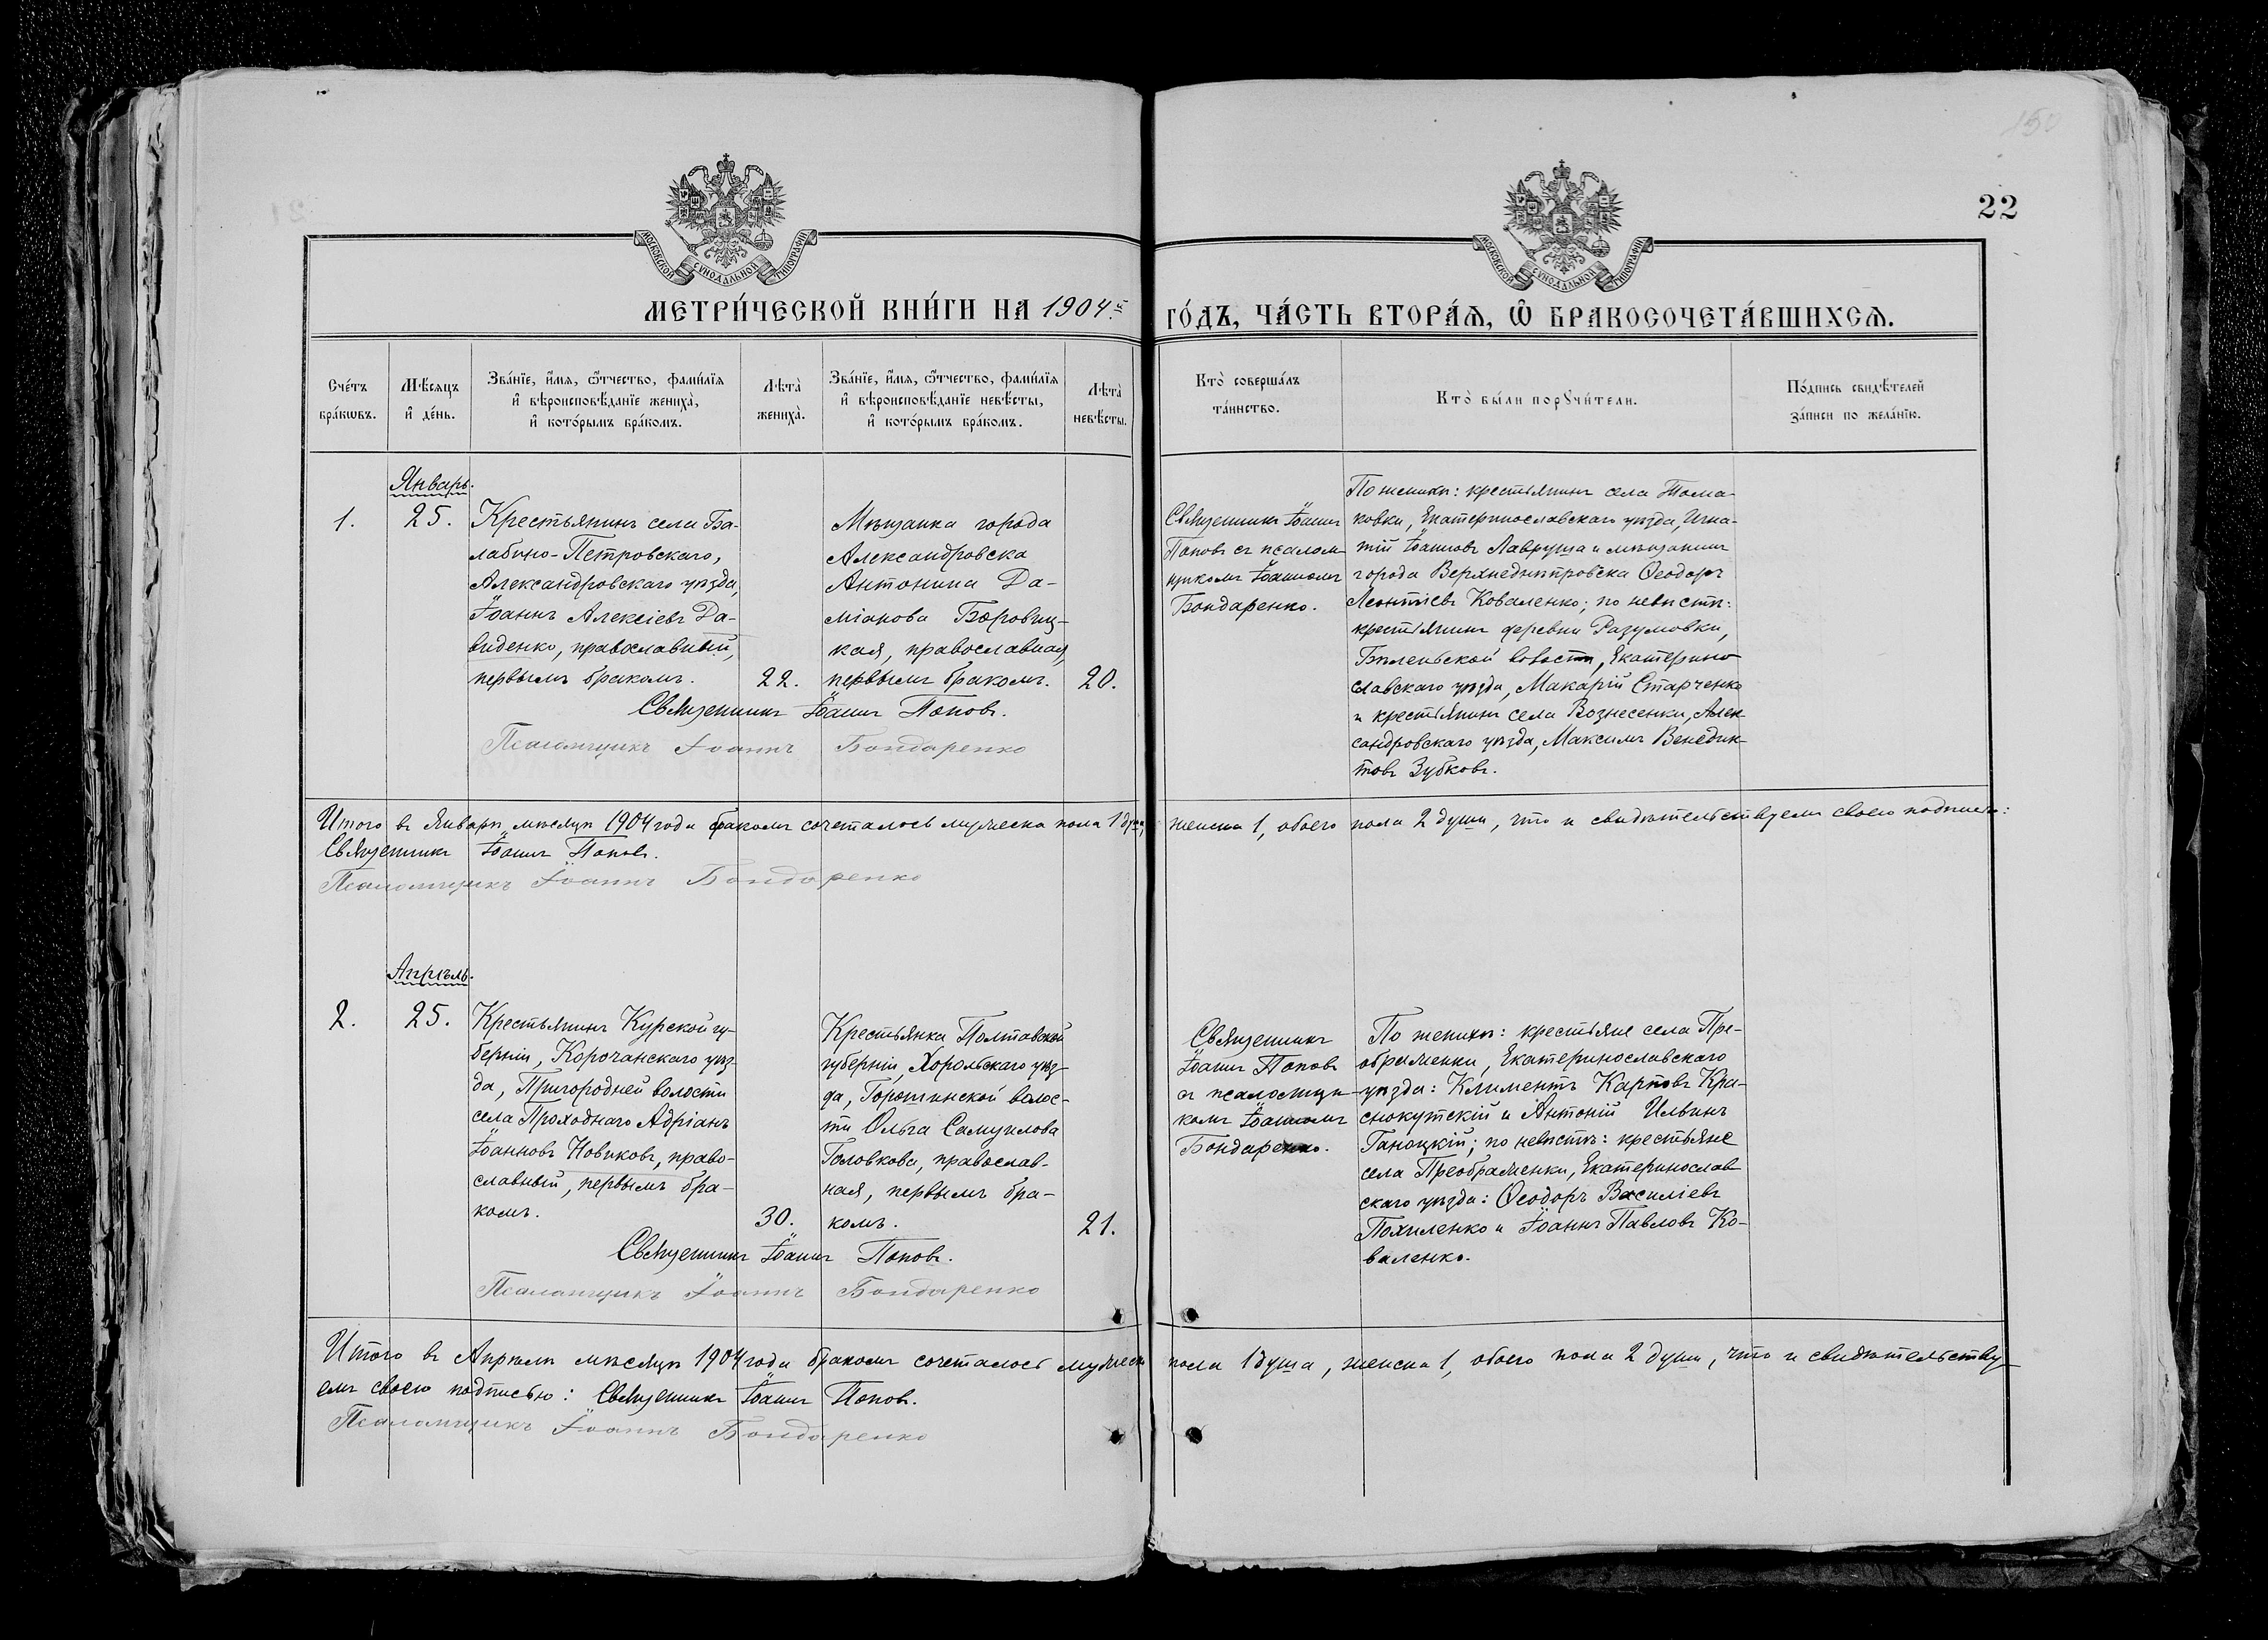 22
МОСКОВСКОЙ СѴНОДАЛЬНОЙ ТИПОГРАФІИ
МОСКОВСКОЙ СѴНОДАЛЬНОЙ ТИПОГРАФІИ
МЕТРИ́ЧЕСКОЙ КНИ́ГИ НА 1904й ГО́ДЪ, ЧА́СТЬ ВТОРА́Ѧ, Ѽ БРАКОСОЧЕТА́ВШИХСѦ.
Сче́тъ
бра́кѡвъ.
Мѣ́сяцъ
и҆ де́нь.
Зва́нїе, и҆́мя, ѻ҆́тчество, фами́лїя
и҆ вѣроисповѣ́данїе жениха̀,
и҆ кото́рымъ бра́комъ.
Лѣта̀
жениха̀.
Зва́нїе, и҆́мя, ѻ҆́тчество, фами́лїя
и҆ вѣроисповѣ́данїе невѣ́сты,
и҆ кото́рымъ бра́комъ.
Лѣта̀
невѣ́сты.
Кто̀ соверша́лъ
та́инство.
Кто̀ бы́ли порꙋчи́тели.
По́дпись свидѣ́телей
за́писи по жела́нїю.
Январь.
1.
25.
Крестьянинъ села Ба-
лабино-Петровскаго,
Александровскаго уѣзда,
Іоаннъ Алексіевъ Да-
виденко, православный,
первымъ бракомъ.
22.
Мѣщанка города
Александровска
Антонина Да-
міанова Боровиц-
кая, православная,
первымъ бракомъ.
20.
Священникъ Іоаннъ Поповъ.
Псаломщикъ Іоаннъ Бондаренко
Священникъ Іоаннъ
Поповъ съ псалом-
щикомъ Іоанномъ
Бондаренко.
По женихѣ: крестьянинъ села Тома-
ковки, Екатеринославскаго уѣзда, Игна-
тій Іоанновъ Лавруша и мѣщанинъ
города Верхнеднѣпровска Ѳеодоръ
Леонтіевъ Коваленко; по невѣстѣ:
крестьянинъ деревни Разумовки,
Бѣленьской волости, Екатерино-
славскаго уѣзда, Макарій Старченко
и крестьянинъ села Вознесенки, Алек-
сандровскаго уѣзда, Максимъ Венедик-
товъ Зубковъ.
Итого въ Январѣ мѣсяцѣ 1904 года бракомъ сочеталось мужеска пола 1 душа, женска 1, обоего пола 2 души, что и свидѣтельствуемъ своею подписью:
Священникъ Іоаннъ Поповъ.
Псаломщикъ Іоаннъ Бондаренко
Апрѣль.
2.
25.
Крестьянинъ Курской гу-
берніи, Корочанскаго уѣз-
да, Пригородней волости
села Проходнаго Адріанъ
Іоанновъ Новиковъ, право-
славный, первымъ бра-
комъ.
30.
Крестьянка Полтавской
губерніи, Хорольскаго уѣз-
да, Горошинской волос-
ти Ольга Самуилова
Головкова, православ-
ная, первымъ бра-
комъ.
21.
Священникъ Іоаннъ Поповъ.
Псаломщикъ Іоаннъ Бондаренко
Священникъ
Іоаннъ Поповъ
съ псаломщи-
комъ Іоанномъ
Бондаренко.
По женихѣ: крестьяне села Пре-
ображенки, Екатеринославскаго
уѣзда: Климентъ Карповъ Кра-
снокутскій и Антоній Ильинъ
Ганоцкій; по невѣстѣ: крестьяне
села Преображенки, Екатеринослав-
скаго уѣзда: Ѳеодоръ Василіевъ
Похиленко и Іоаннъ Павловъ Ко-
валенко.
Итого въ Апрѣлѣ мѣсяцѣ 1904 года бракомъ сочеталось мужеска пола 1 душа, женска 1, обоего пола 2 души, что и свидѣтельству-
емъ своею подписью: Священникъ Іоаннъ Поповъ.
Псаломщикъ Іоаннъ Бондаренко